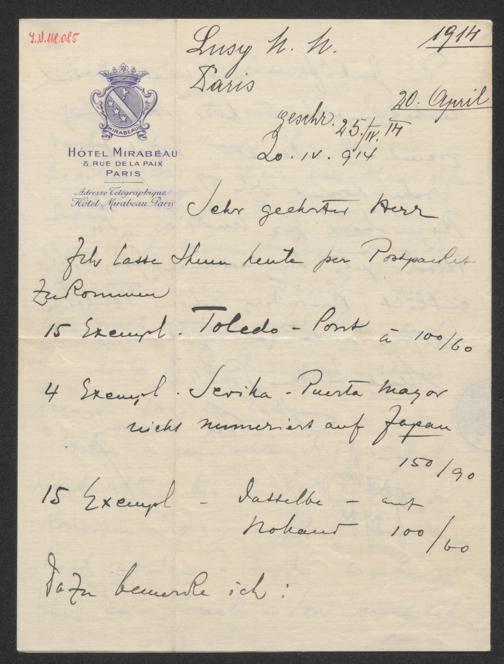 I.N. 118.085
Lusy M. M.
Paris
1914
20. April
geschr. 25./IV. 14
20. IV. 914
MIRABEAU
HÔTEL MIRABEAU
8, RUE DE LA PAIX
PARIS
Adresse Télégraphique
Hôtel-Mirabeau, Paris
Sehr geehrter Herr
Ich lasse Ihnen heute per Postpacket
zukommen
15 Exempl. Toledo - Pont à 100/60
4 Exempl. Sevilla - Puerta Mayor
nicht numeriert auf Japan
150/90
15 Exempl - dasselbe - auf
100/60
Dazu bemerke ich: